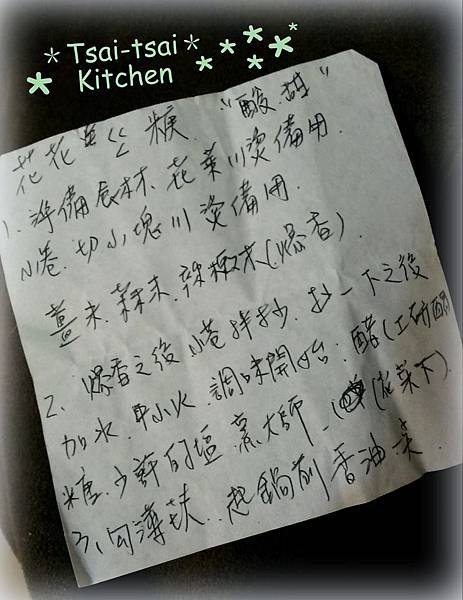 *Tsai-tsai*
Kitchen
花花 糖 "酸甜"
1、準備食材、花菜川燙備用.
小卷.切小塊川燙備用.
薑末.蒜末.辣椒末(爆香).
2、爆香之後小卷拌抄.抄一下之後
加水.中小火.調味開始:醋(工研醋)
糖.少許的塩烹大師.(花菜下).
3、勾薄芡.起鍋前香油來.